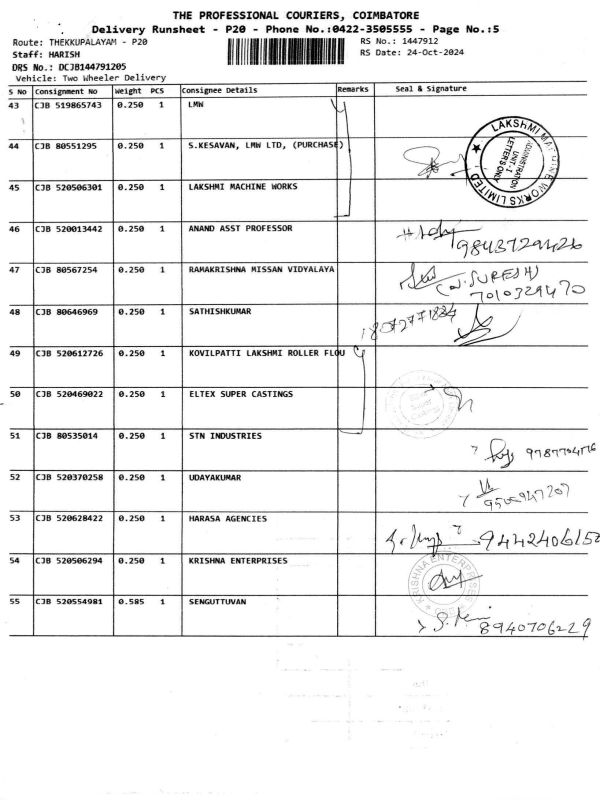 THE PROFESSIONAL COURIERS, COIMBATORE
Delivery Runsheet - P20 - Phone No.:0422-3505555 - Page No.:5
Route: THEKKUPALAYAM - P20 RS No.: 1447912
Staff: HARISH RS Date: 24-Oct-2024
DRS No.: DCJB144791205
Vehicle: Two Wheeler Delivery
S No Consignment No Weight PCS Consignee Details Remarks Seal & Signature
43 CJB 519865743 0.250 1 LMW
44 CJB 80551295 0.250 1 S.KESAVAN, LMW LTD, (PURCHASE)
LAKSHMI MACHINE WORKS LIMITED
ADMINISTRATION
UNIT-I
LETTERS ONLY
45 CJB 520506301 0.250 1 LAKSHMI MACHINE WORKS
46 CJB 520013442 0.250 1 ANAND ASST PROFESSOR
9843729426
47 CJB 80567254 0.250 1 RAMAKRISHNA MISSAN VIDYALAYA
(N.SURESH)
7010329470
48 CJB 80646969 0.250 1 SATHISHKUMAR
49 CJB 520612726 0.250 1 KOVILPATTI LAKSHMI ROLLER FLOU
50 CJB 520469022 0.250 1 ELTEX SUPER CASTINGS
51 CJB 80535014 0.250 1 STN INDUSTRIES
52 CJB 520370258 0.250 1 UDAYAKUMAR
53 CJB 520628422 0.250 1 HARASA AGENCIES
54 CJB 520506294 0.250 1 KRISHNA ENTERPRISES
KRISHNA ENTERPRISES
55 CJB 520554981 0.585 1 SENGUTTUVAN
8940706229